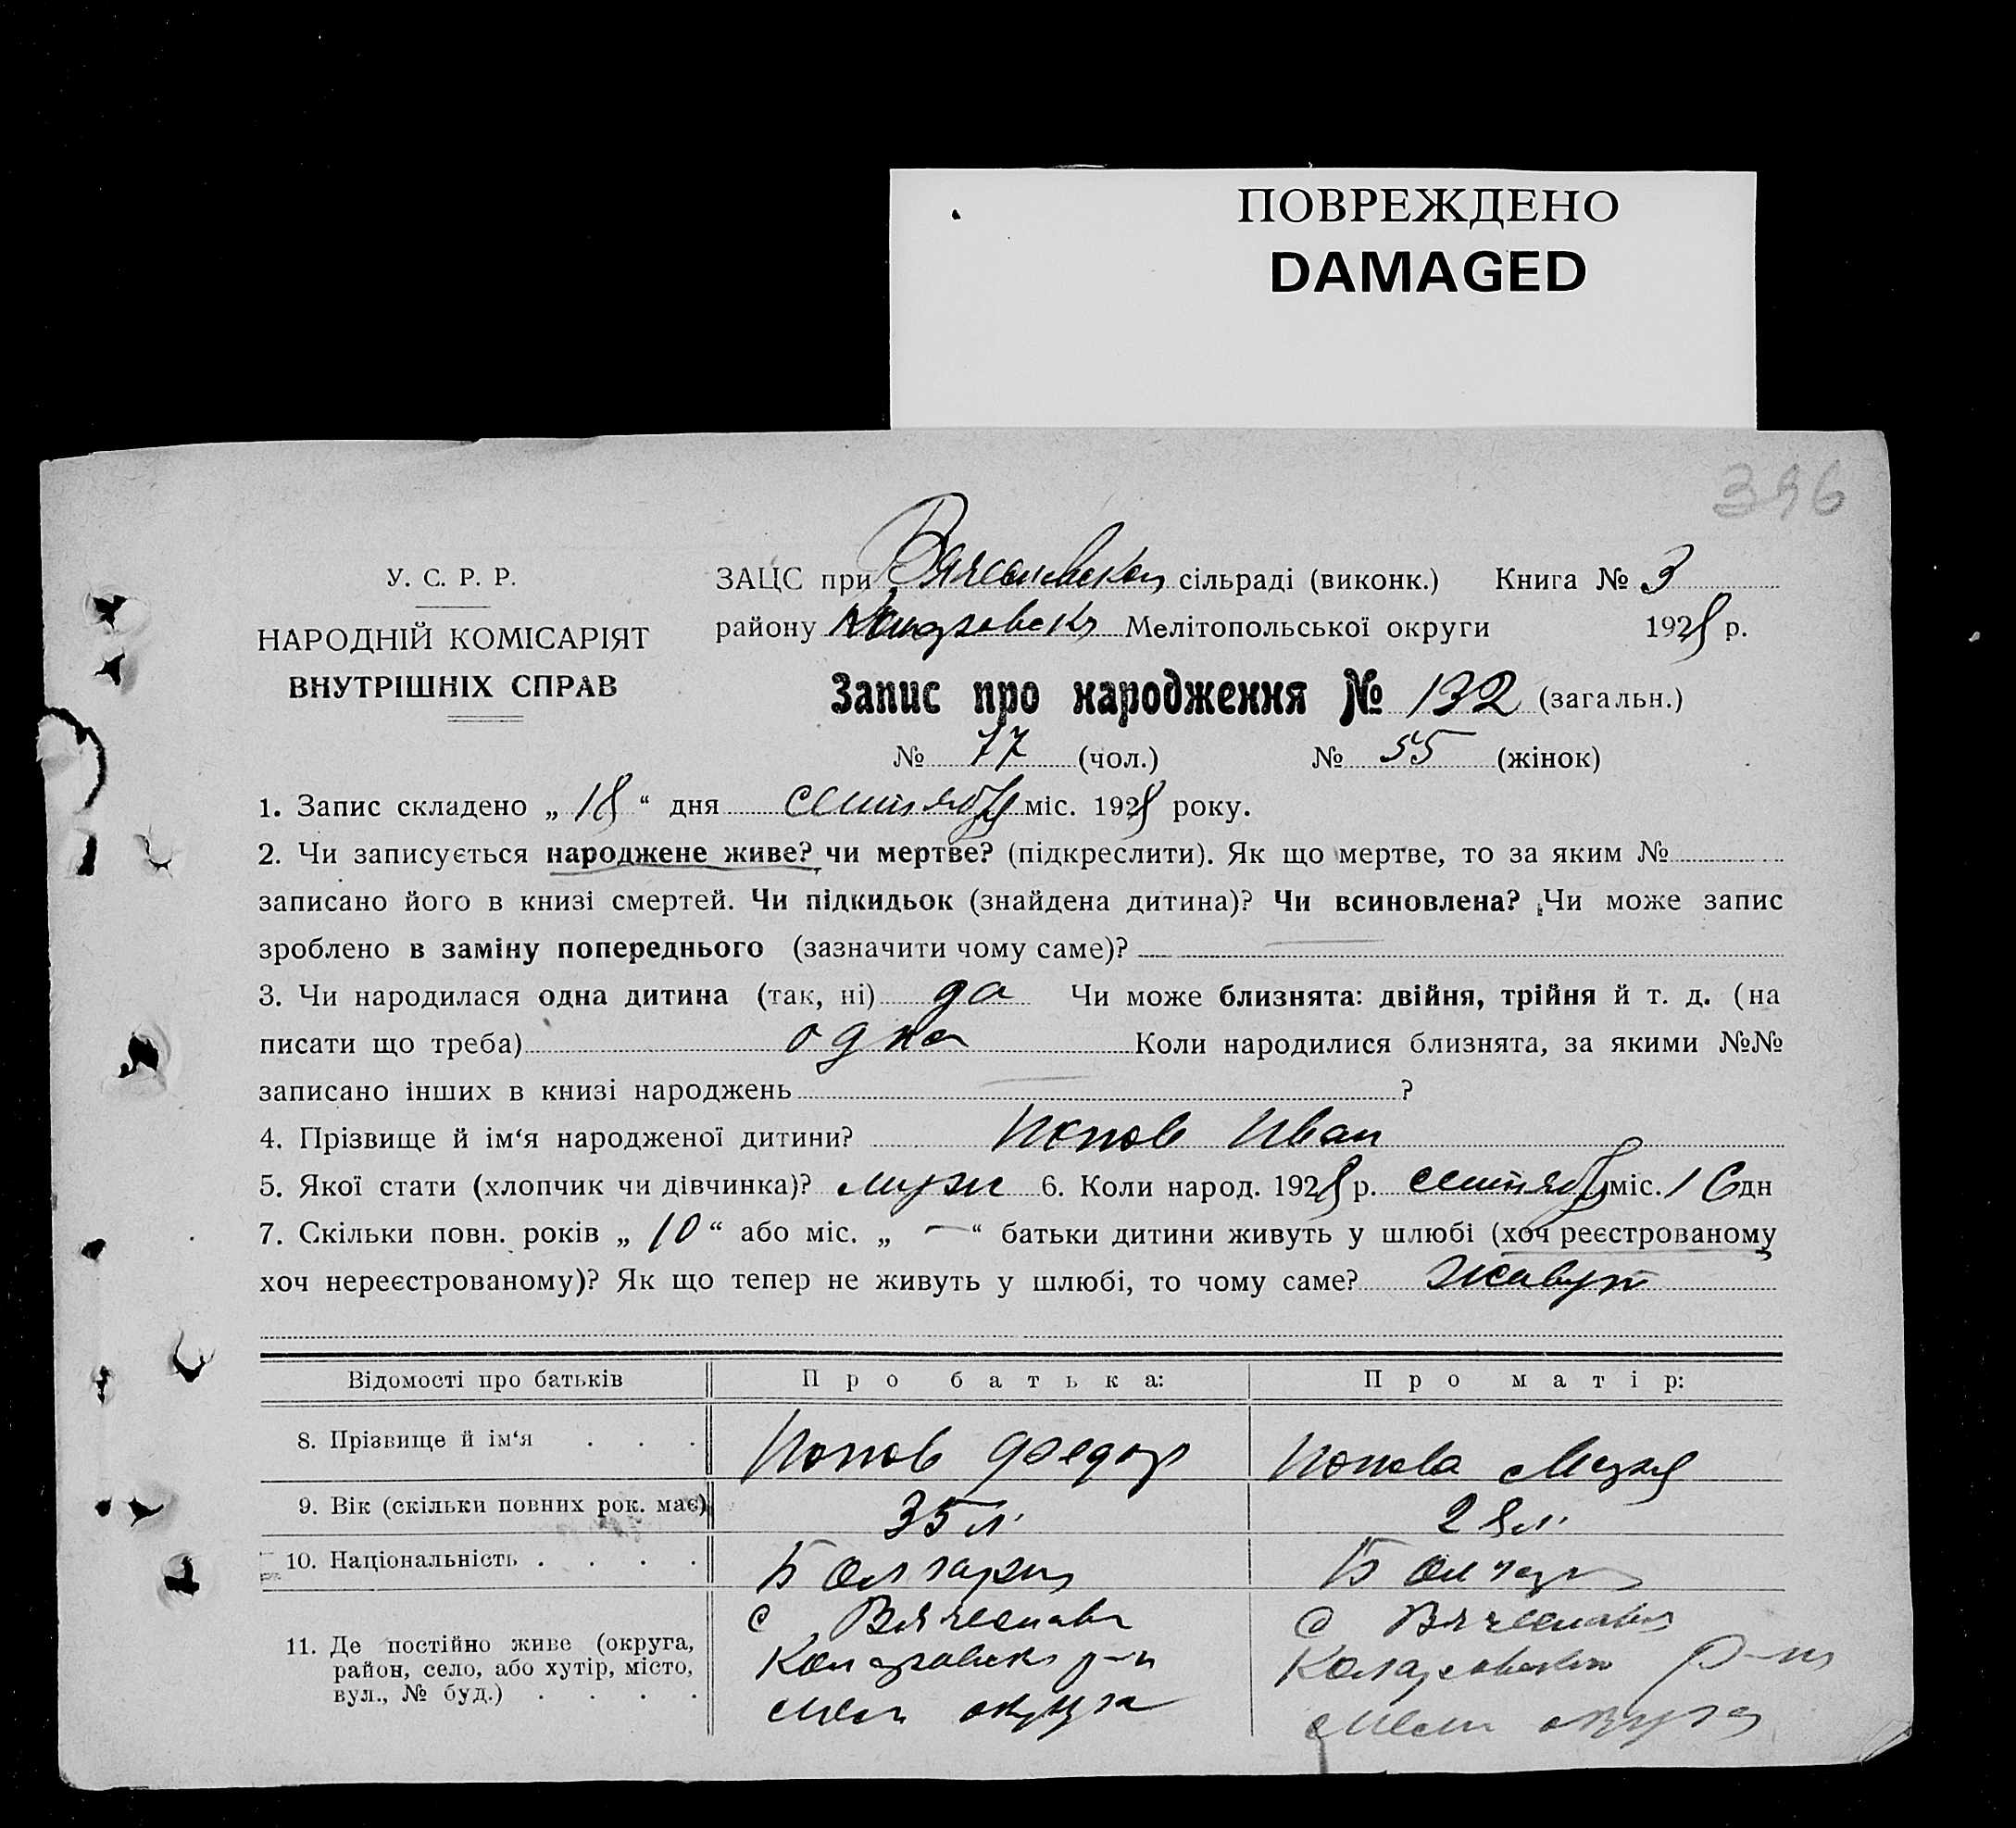 ПОВРЕЖДЕНО
DAMAGED
396
У. С. Р. Р.
НАРОДНІЙ КОМІСАРІЯТ
ВНУТРІШНІХ СПРАВ
ЗАЦС при сільраді (виконк.) Книга № 3
району Мелітопольської округи 1928 р.
Запис про народження № 132 (загальн.)
№ 77 (чол.) № 55 (жінок)
1. Запис складено „ 18 “ дня сентября міс. 1928 року.
2. Чи записується народжене живе? чи мертве? (підкреслити). Як що мертве, то за яким №
записано його в книзі смертей. Чи підкидьок (знайдена дитина)? Чи всиновлена? Чи може запис
зроблено в заміну попереднього (зазначити чому саме)? —
3. Чи народилася одна дитина (так, ні) да Чи може близнята: двійня, трійня й т. д. (на
писати що треба) одна Коли народилися близнята, за якими №№
записано інших в книзі народжень — ?
4. Прізвище й ім‘я народженої дитини? Попов Иван
5. Якої стати (хлопчик чи дівчинка)? муж 6. Коли народ. 1928 р. сентября міс. 16 дн
7. Скільки повн. років „ 10 “ або міс. „ — “ батьки дитини живуть у шлюбі (хоч реєстрованому
хоч нереєстрованому)? Як що тепер не живуть у шлюбі, то чому саме? живут
Відомості про батьків Про батька: Про матір:
8. Прізвище й ім‘я . . . Попов Федор Попова Мария
9. Вік (скільки повних рок. має) 35 л. 28 л.
10. Національність . . . . Болгарин Болгарка
11. Де постійно живе (округа,
район, село, або хутір, місто,
вул., № буд.) . . . .
с Вячеславка
Коларовск р-н
Мел округа
с Вячеславка
р-н
Мел округа